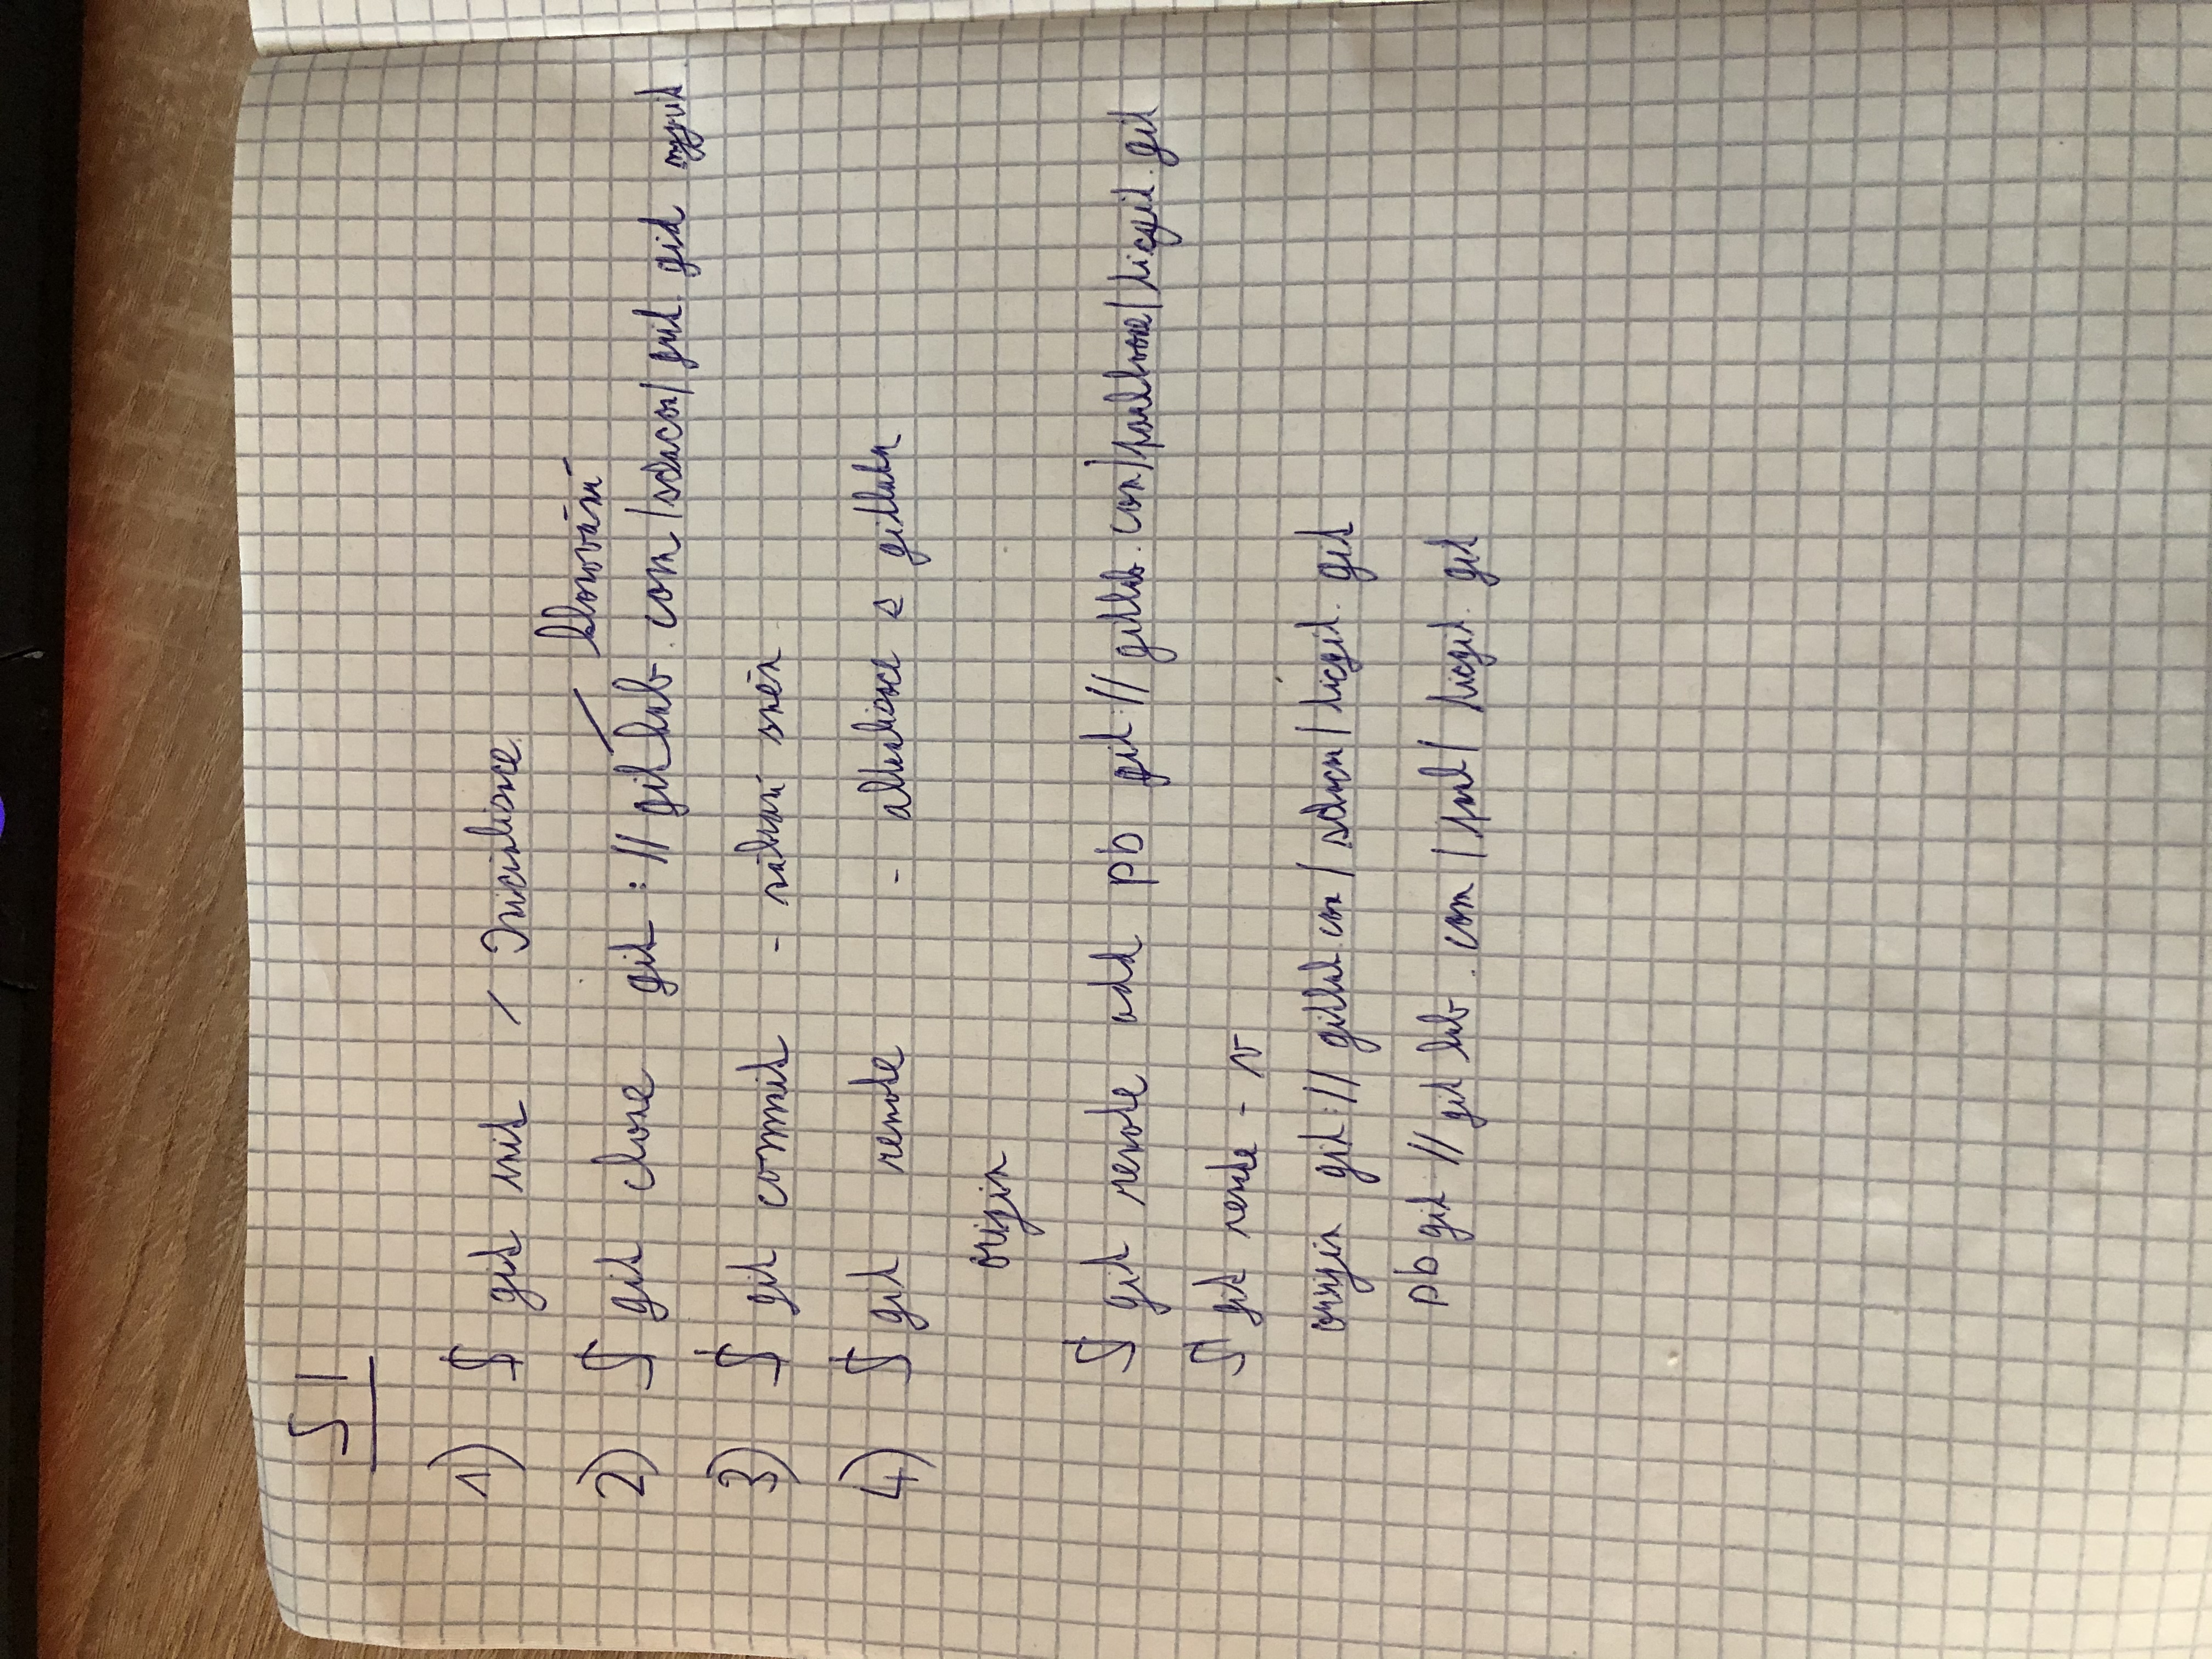 S1
1) $ git init - Inicialisace
- klonování
2) $ git clone git://github.com/schacon/grit.git mygrit
3) $ git commit - změn
4) $ git remote - z githubu
origin
$ git remote add pb git://github.com/paulboone/ticgit.git
$ git remote -v
origin git://github.com/schacon/ticgit.git
pb git://github.com/paul/ticgit.git